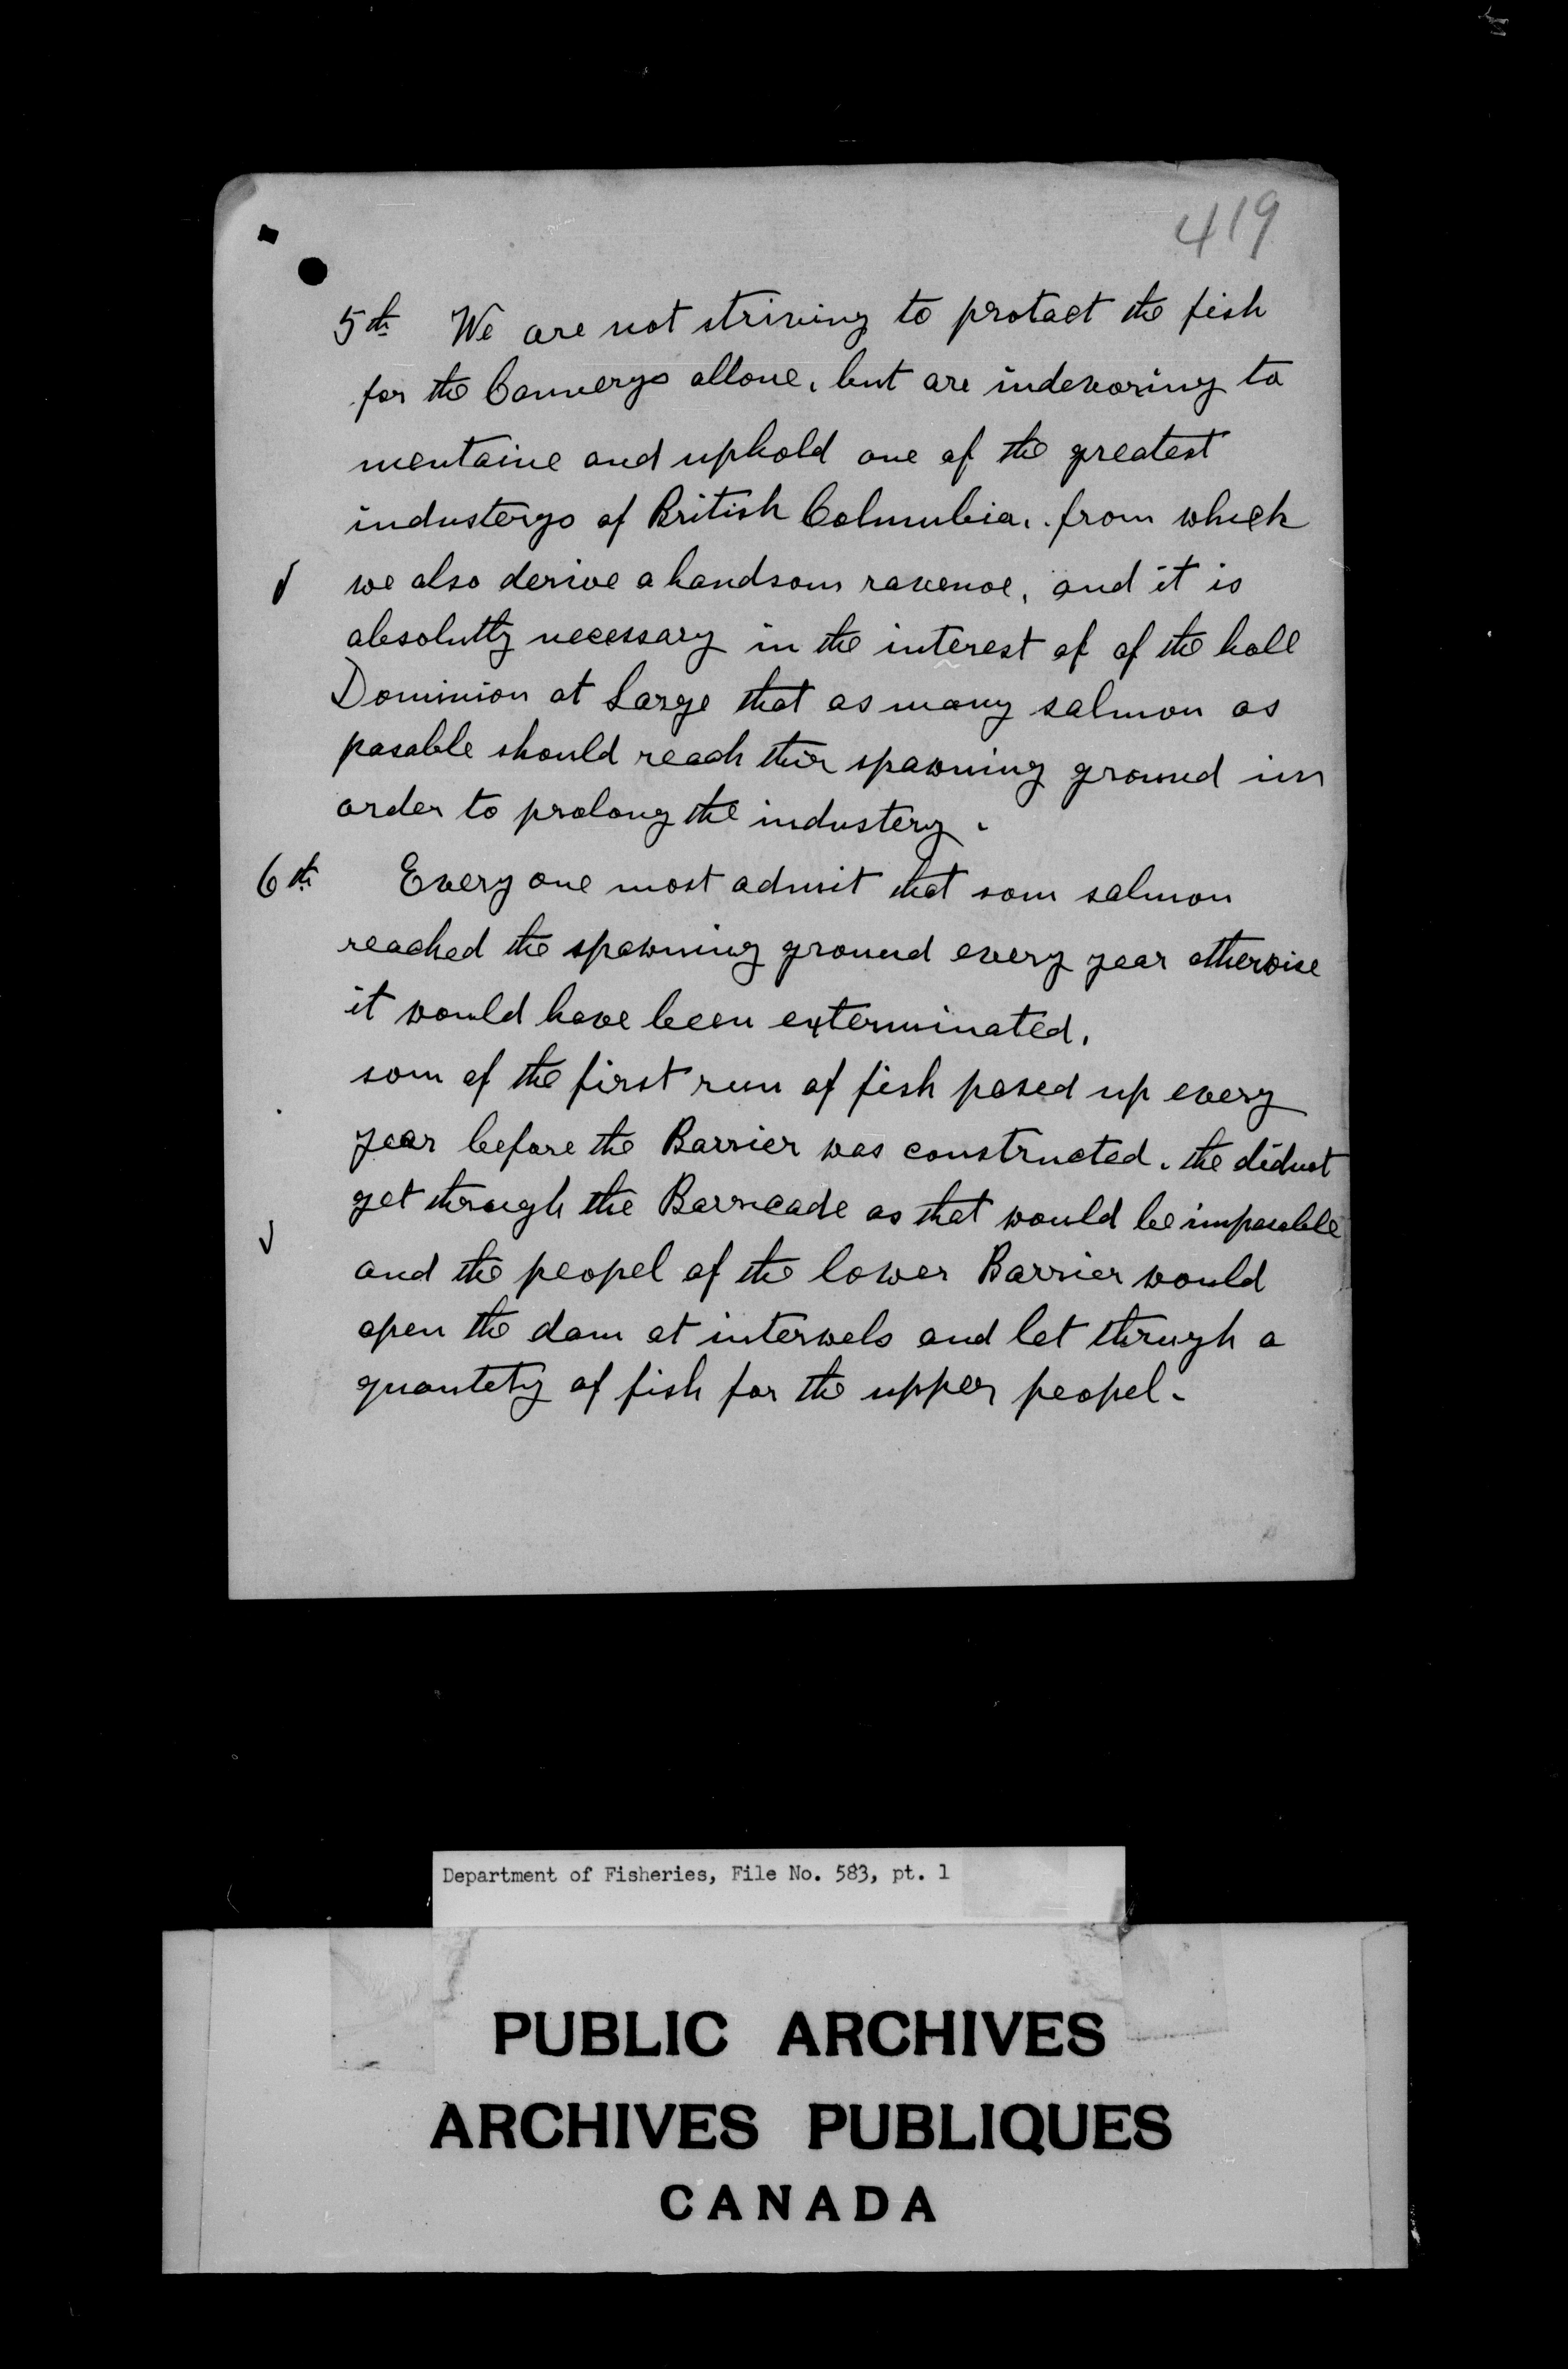 419
5th We are not striving to protact the fish
for the Cannerys allone, but are indevoring to
mentaine and uphold one of the greatest
industerys of British Columbia, from which
we also derive a handsom ravenoe, and it is
absolutty necessary in the interest of of the holl
Dominion at Large that as many salmon as
posable should reach thir spawning ground in
order to prolong the industery.
6th Every one most admit that som salmon
reached the spawning ground every year otherwise
it would have been exterminated.
som of the first run of fish posed up every
year before the Barrier was constructed. the didnot
get through the Barricade as that would be imposable
and the peopel of the lower Barrier would
open the dam at interwels and let thrugh a
quantety of fish for the upper peopel.
Department of Fisheries, File No. 583, pt. 1
PUBLIC ARCHIVES
ARCHIVES PUBLIQUES
CANADA